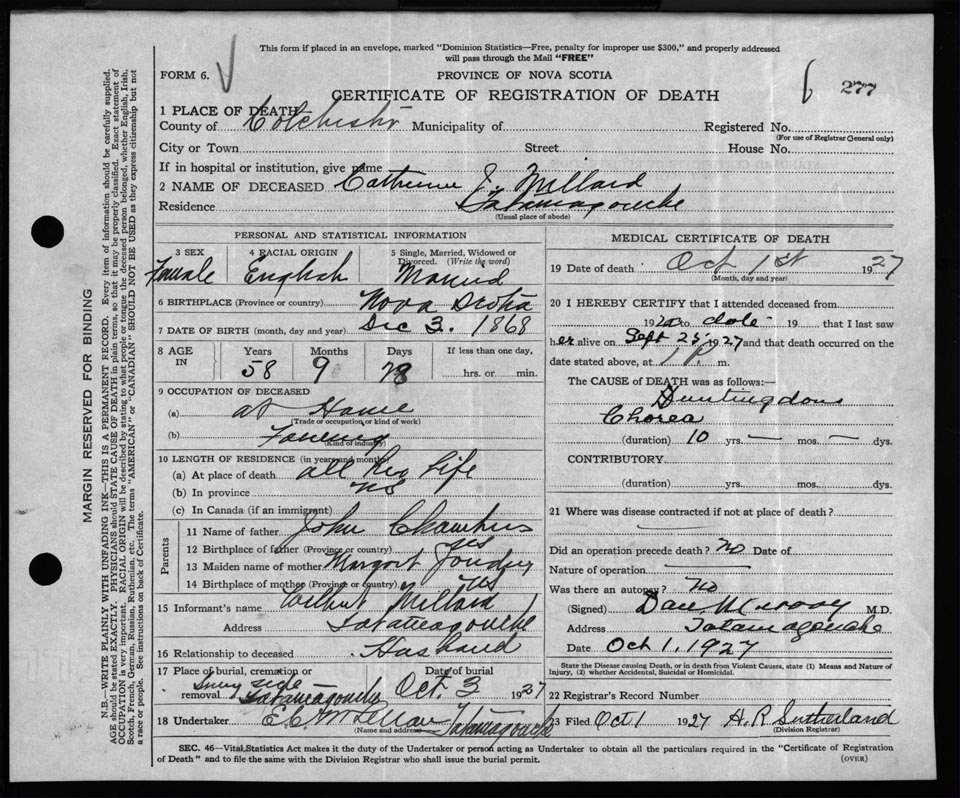 This form if placed in an envelope, marked "Dominion Statistics—Free, penalty for improper use $300," and properly addressed
will pass through the Mail "FREE"
FORM 6.
PROVINCE OF NOVA SCOTIA
CERTIFICATE OF REGISTRATION OF DEATH
6 277
1 PLACE OF DEATH
County of Colchester Municipality of Registered No.
(For use of Registrar General only)
City or Town Street House No.
If in hospital or institution, give name
2 NAME OF DECEASED Catherine J. Millard
Residence Tatamagouche
(Usual place of abode)
PERSONAL AND STATISTICAL INFORMATION
3 SEX 4 RACIAL ORIGIN 5 Single, Married, Widowed or
Divorced. (Write the word)
Female English Married
6 BIRTHPLACE (Province or country) Nova Scotia
7 DATE OF BIRTH (month, day and year) Dec 3. 1868
8 AGE IN Years Months Days If less than one day,
58 9 28 hrs. or min.
9 OCCUPATION OF DECEASED
(a) at Home
(Trade or occupation or kind of work)
(b) Farming
(Kind of industry)
10 LENGTH OF RESIDENCE (in years and months)
(a) At place of death all her life
(b) In province NS
(c) In Canada (if an immigrant)
Parents
11 Name of father John Chambers
12 Birthplace of father (Province or country) NS
13 Maiden name of mother Margaret
14 Birthplace of mother (Province or country) NS
15 Informant's name Wilbert Millard
Address Tatamagouche
16 Relationship to deceased Husband
17 Place of burial, cremation or Date of burial
removal side Tatamagouche Oct. 3 1927
18 Undertaker Tatamagouche
(Name and address)
MEDICAL CERTIFICATE OF DEATH
19 Date of death Oct 1st 1927
(Month, day and year)
20 I HEREBY CERTIFY that I attended deceased from
19 20 to date 19 that I last saw
her alive on Sept 25 1927 and that death occurred on the
date stated above, at 1 P. m.
The CAUSE of DEATH was as follows:—
Huntingdons
Chorea
(duration) 10 yrs. — mos. — dys.
CONTRIBUTORY.
(duration) yrs. mos. dys.
21 Where was disease contracted if not at place of death?
Did an operation precede death? No Date of
Nature of operation
Was there an autopsy? No
(Signed) Dan Murray M.D.
Address Tatamagouche
Date Oct 1, 1927
State the Disease causing Death, or in death from Violent Causes, state (1) Means and Nature of
Injury, (2) whether Accidental, Suicidal or Homicidal.
22 Registrar's Record Number
23 Filed Oct 1 1927 A. R. Sutherland
(Division Registrar)
SEC. 46—Vital Statistics Act makes it the duty of the Undertaker or person acting as Undertaker to obtain all the particulars required in the "Certificate of Registration
of Death" and to file the same with the Division Registrar who shall issue the burial permit.
(OVER)
MARGIN RESERVED FOR BINDING
N.B.—WRITE PLAINLY WITH UNFADING INK—THIS IS A PERMANENT RECORD. Every item of information should be carefully supplied.
AGE should be stated EXACTLY. PHYSICIANS should STATE CAUSE OF DEATH in plain terms, so that it may be properly classified. Exact statement of
OCCUPATION is very important. RACIAL ORIGIN will be described by stating to what people or tongue the deceased person belonged, whether English, Irish,
Scotch, French, German, Russian, Ruthenian, etc. The terms "AMERICAN" or "CANADIAN" SHOULD NOT BE USED as they express citizenship but not
a race or people. See instructions on back of Certificate.